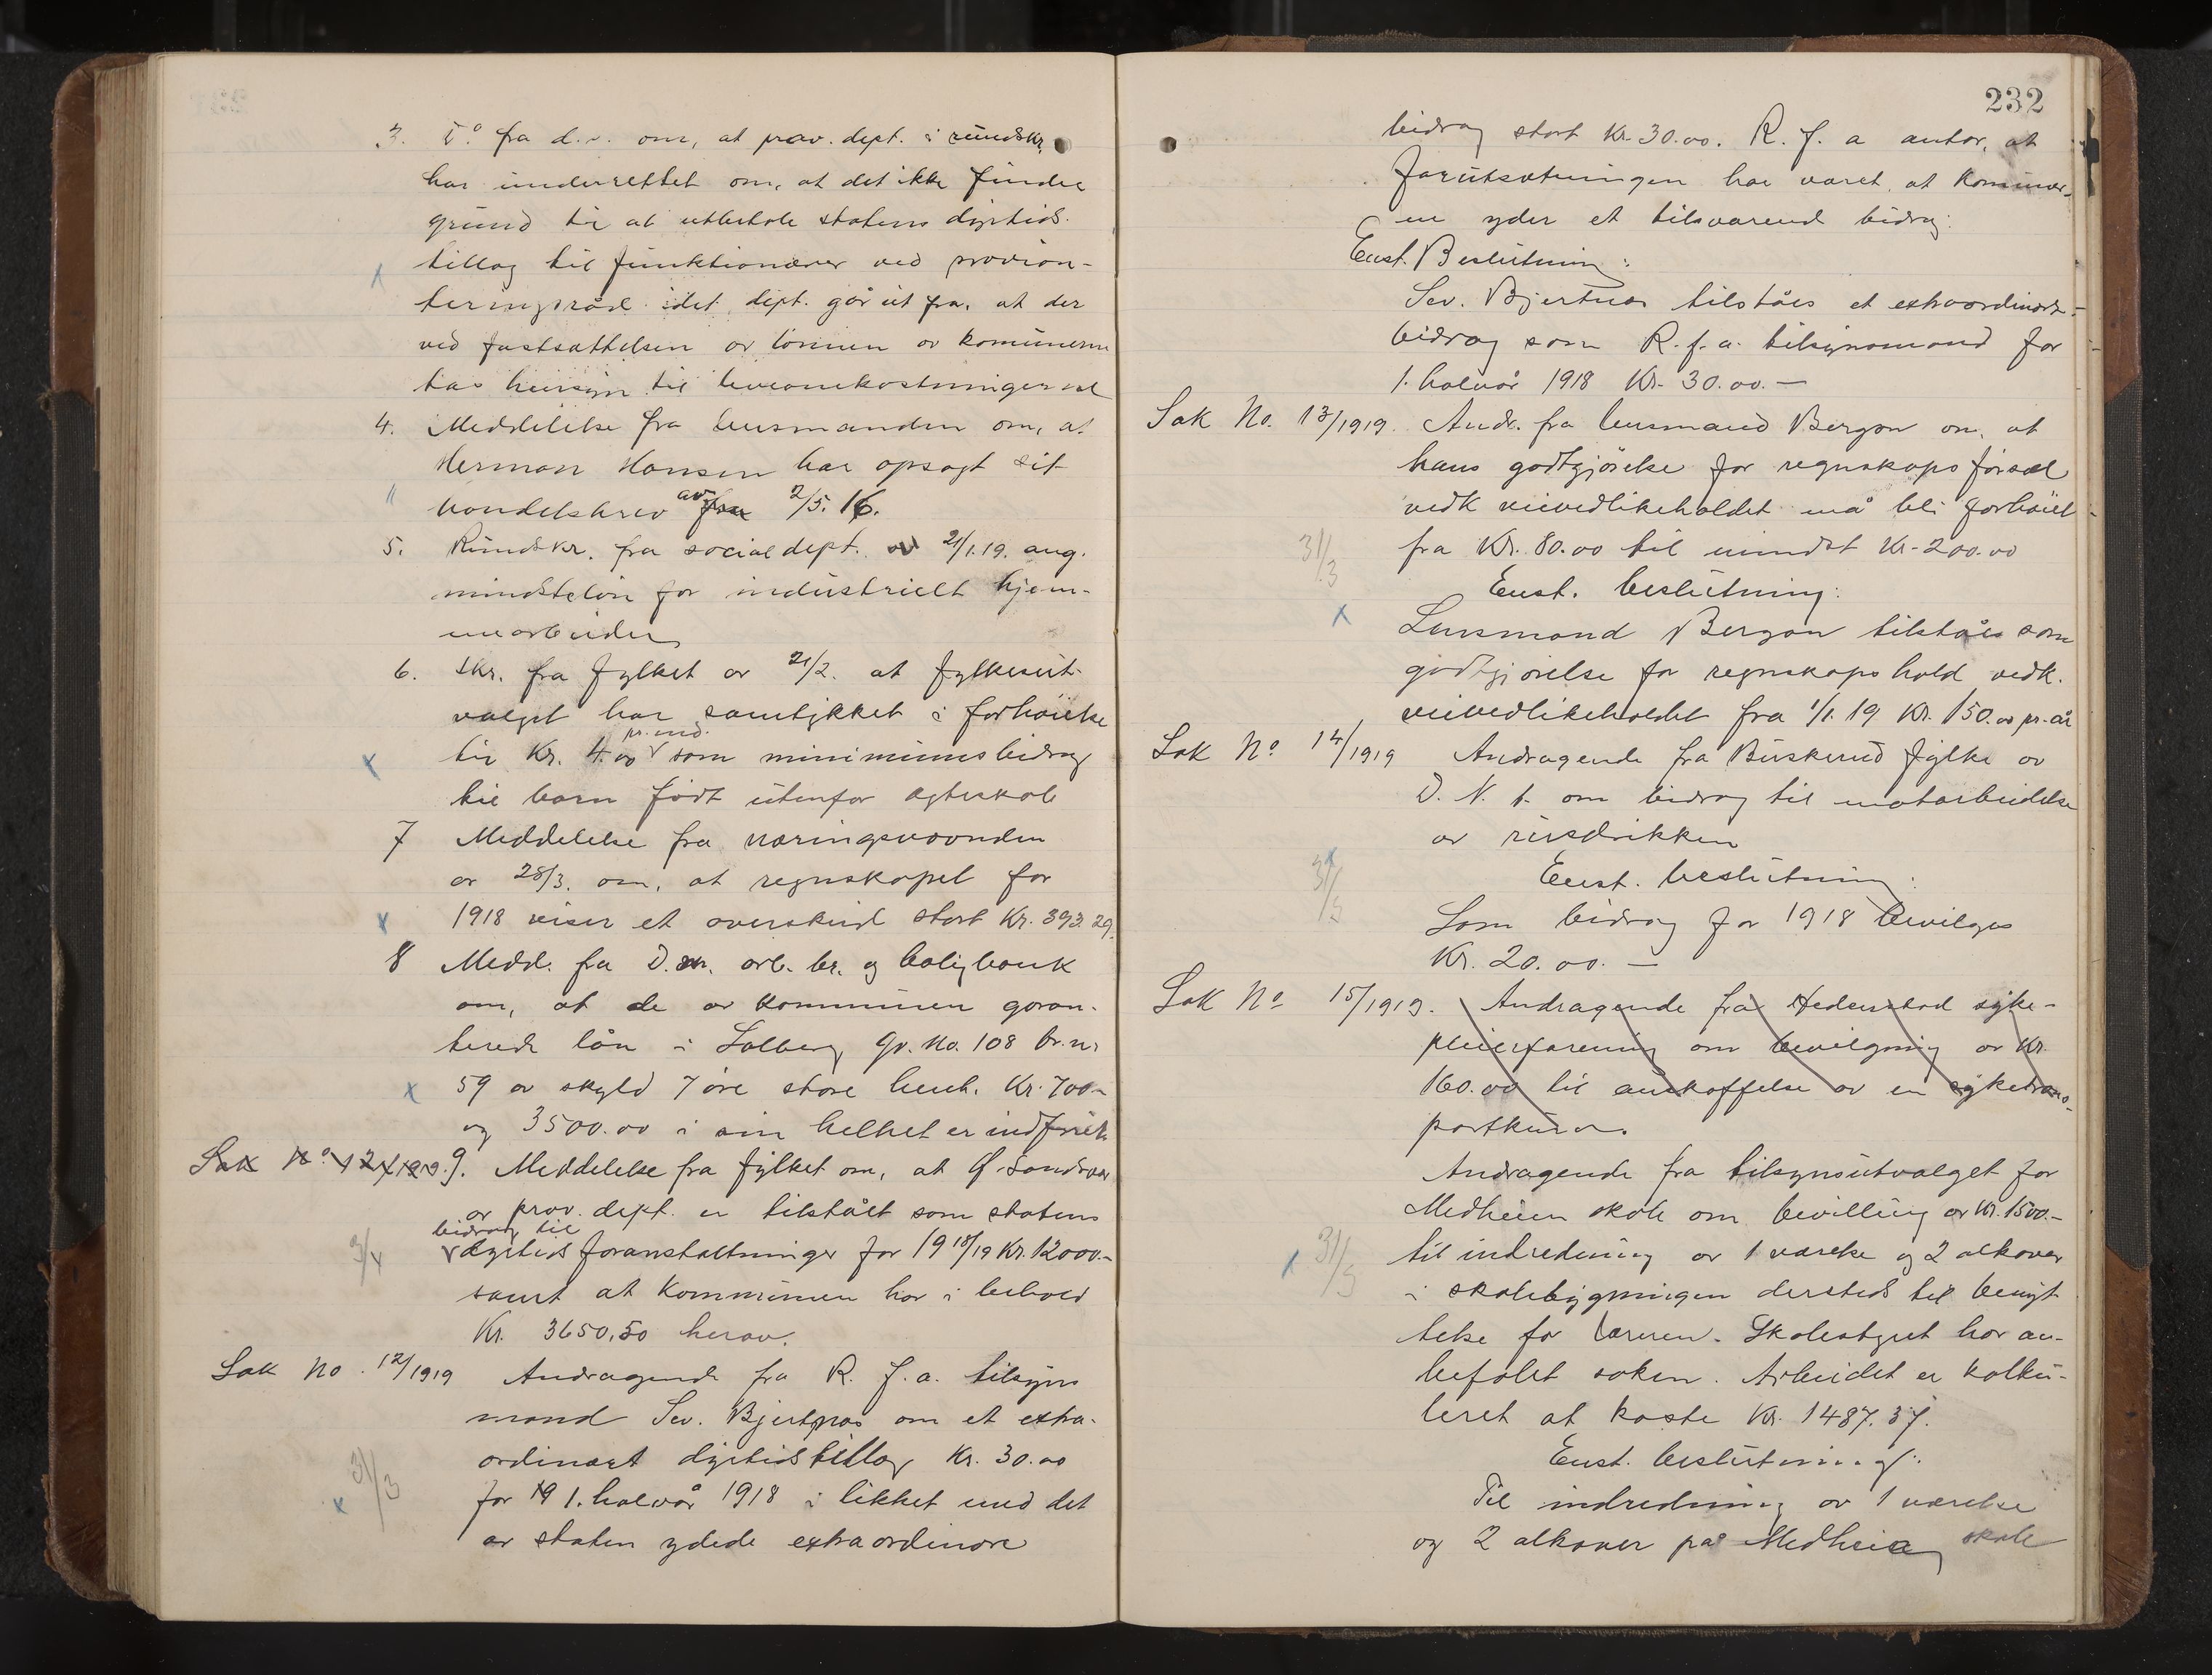 3. Do fra d.s. om, at prov. dept. i rundskr.
har underrettet om, at det ikke finder
grund til at utbetale statens dyrtids-
tillæg til funktionærer ved provian-
teringsråd idet dept. går ut fra, at der
ved fastsættelsen av lønnen av kommunerne
tas hensyn til leveomkostningerne
4. Meddelelse fra lensmanden om, at
Herman Hansen har opsagt sit
handelsbrev av fra 2/5. 16.
5. Rundskr. fra socialdept. av 21/1.19. ang.
mindsteløn for industrielt hjem-
mearbeide
6. Skr. fra fylket av 21/2. at fylkesut-
valget har samtykket i forhøielse
til Kr. 4.00 pr. md. som minimumsbidrag
til barn født utenfor egteskab
7 Meddelelse fra næringsvaanden
av 28/3. om, at regnskapet for
1918 viser et overskud stort Kr. 393.29.
8 Medd. fra D. n. arb. br. og boligbank
om, at de av kommunen garan-
terede lån i Solberg gr. no. 108 br.nr
59 av skyld 7 øre store henh. Kr. 700-
og 3500.00 i sin helhet er indfriet
Sak No 12/1919 9. Meddelelse fra fylket om, at G. Sandsvær
av prov. dept. er tilstået som statens
bidrag til
dyrtidsforanstaltninger for 1918/19 Kr. 12000.-
samt at kommunen har i behold
Kr. 3650,50 herav.
3/4
Sak No. 12/1919 Andragende fra R. f. a. tilsyns
mand Sev. Bjertnæs om et extra-
ordinært dyrtidstillæg Kr. 30.00
for 19 1. halvår 1918 i likhet med det
av staten ydede extraordinære
31/3
232
bidrag stort Kr. 30.00. R. f. a antar, at
forutsætningen har været at kommun-
en yder et tilsvarende bidrag:
Enst. Beslutning:
Sev. Bjertnæs tilståes et extraordinært
bidrag som R. f. a. tilsynsmand for
1. halvår 1918 Kr. 30.00.-
Sak No. 13/1919. Andr. fra lensmand Bergan om, at
hans godtgjørelse for regnskapsførsel
vedk veivedlikeholdet må bli forhøiet
fra Kr. 80.00 til mindst Kr. 200.00
31/3
Enst. beslutning:
Lensmand Bergan tilståes som
godtgjørelse for regnskapshold vedk.
veivedlikeholdet fra 1/1. 19 Kr. 150.00 pr. år
Sak No 14/1919 Andragende fra Buskerud fylke av
D. N. t. om bidrag til motarbeidelse
av rusdrikken
31/3
Enst. beslutning:
Som bidrag for 1918 bevilges
Kr. 20.00.-
Sak No 15/1919. Andragende fra Hedenstad syke-
pleierforening om bevilgning av Kr.
160.00 til anskaffelse av en syketrans-
portkurv.
Andragende fra tilsynsutvalget for
Medheien skole om bevilling av Kr. 1500.-
til indredning av 1 værelse og 2 alkover
i skolebygningen dersteds til benyt-
telse for læreren. Skolestyret har an-
befalet saken. Arbeidet er kalku-
leret at koste Kr. 1487.37.
31/3
Enst. beslutning:
Til indredning av 1 værelse
og 2 alkover på Medheien skole